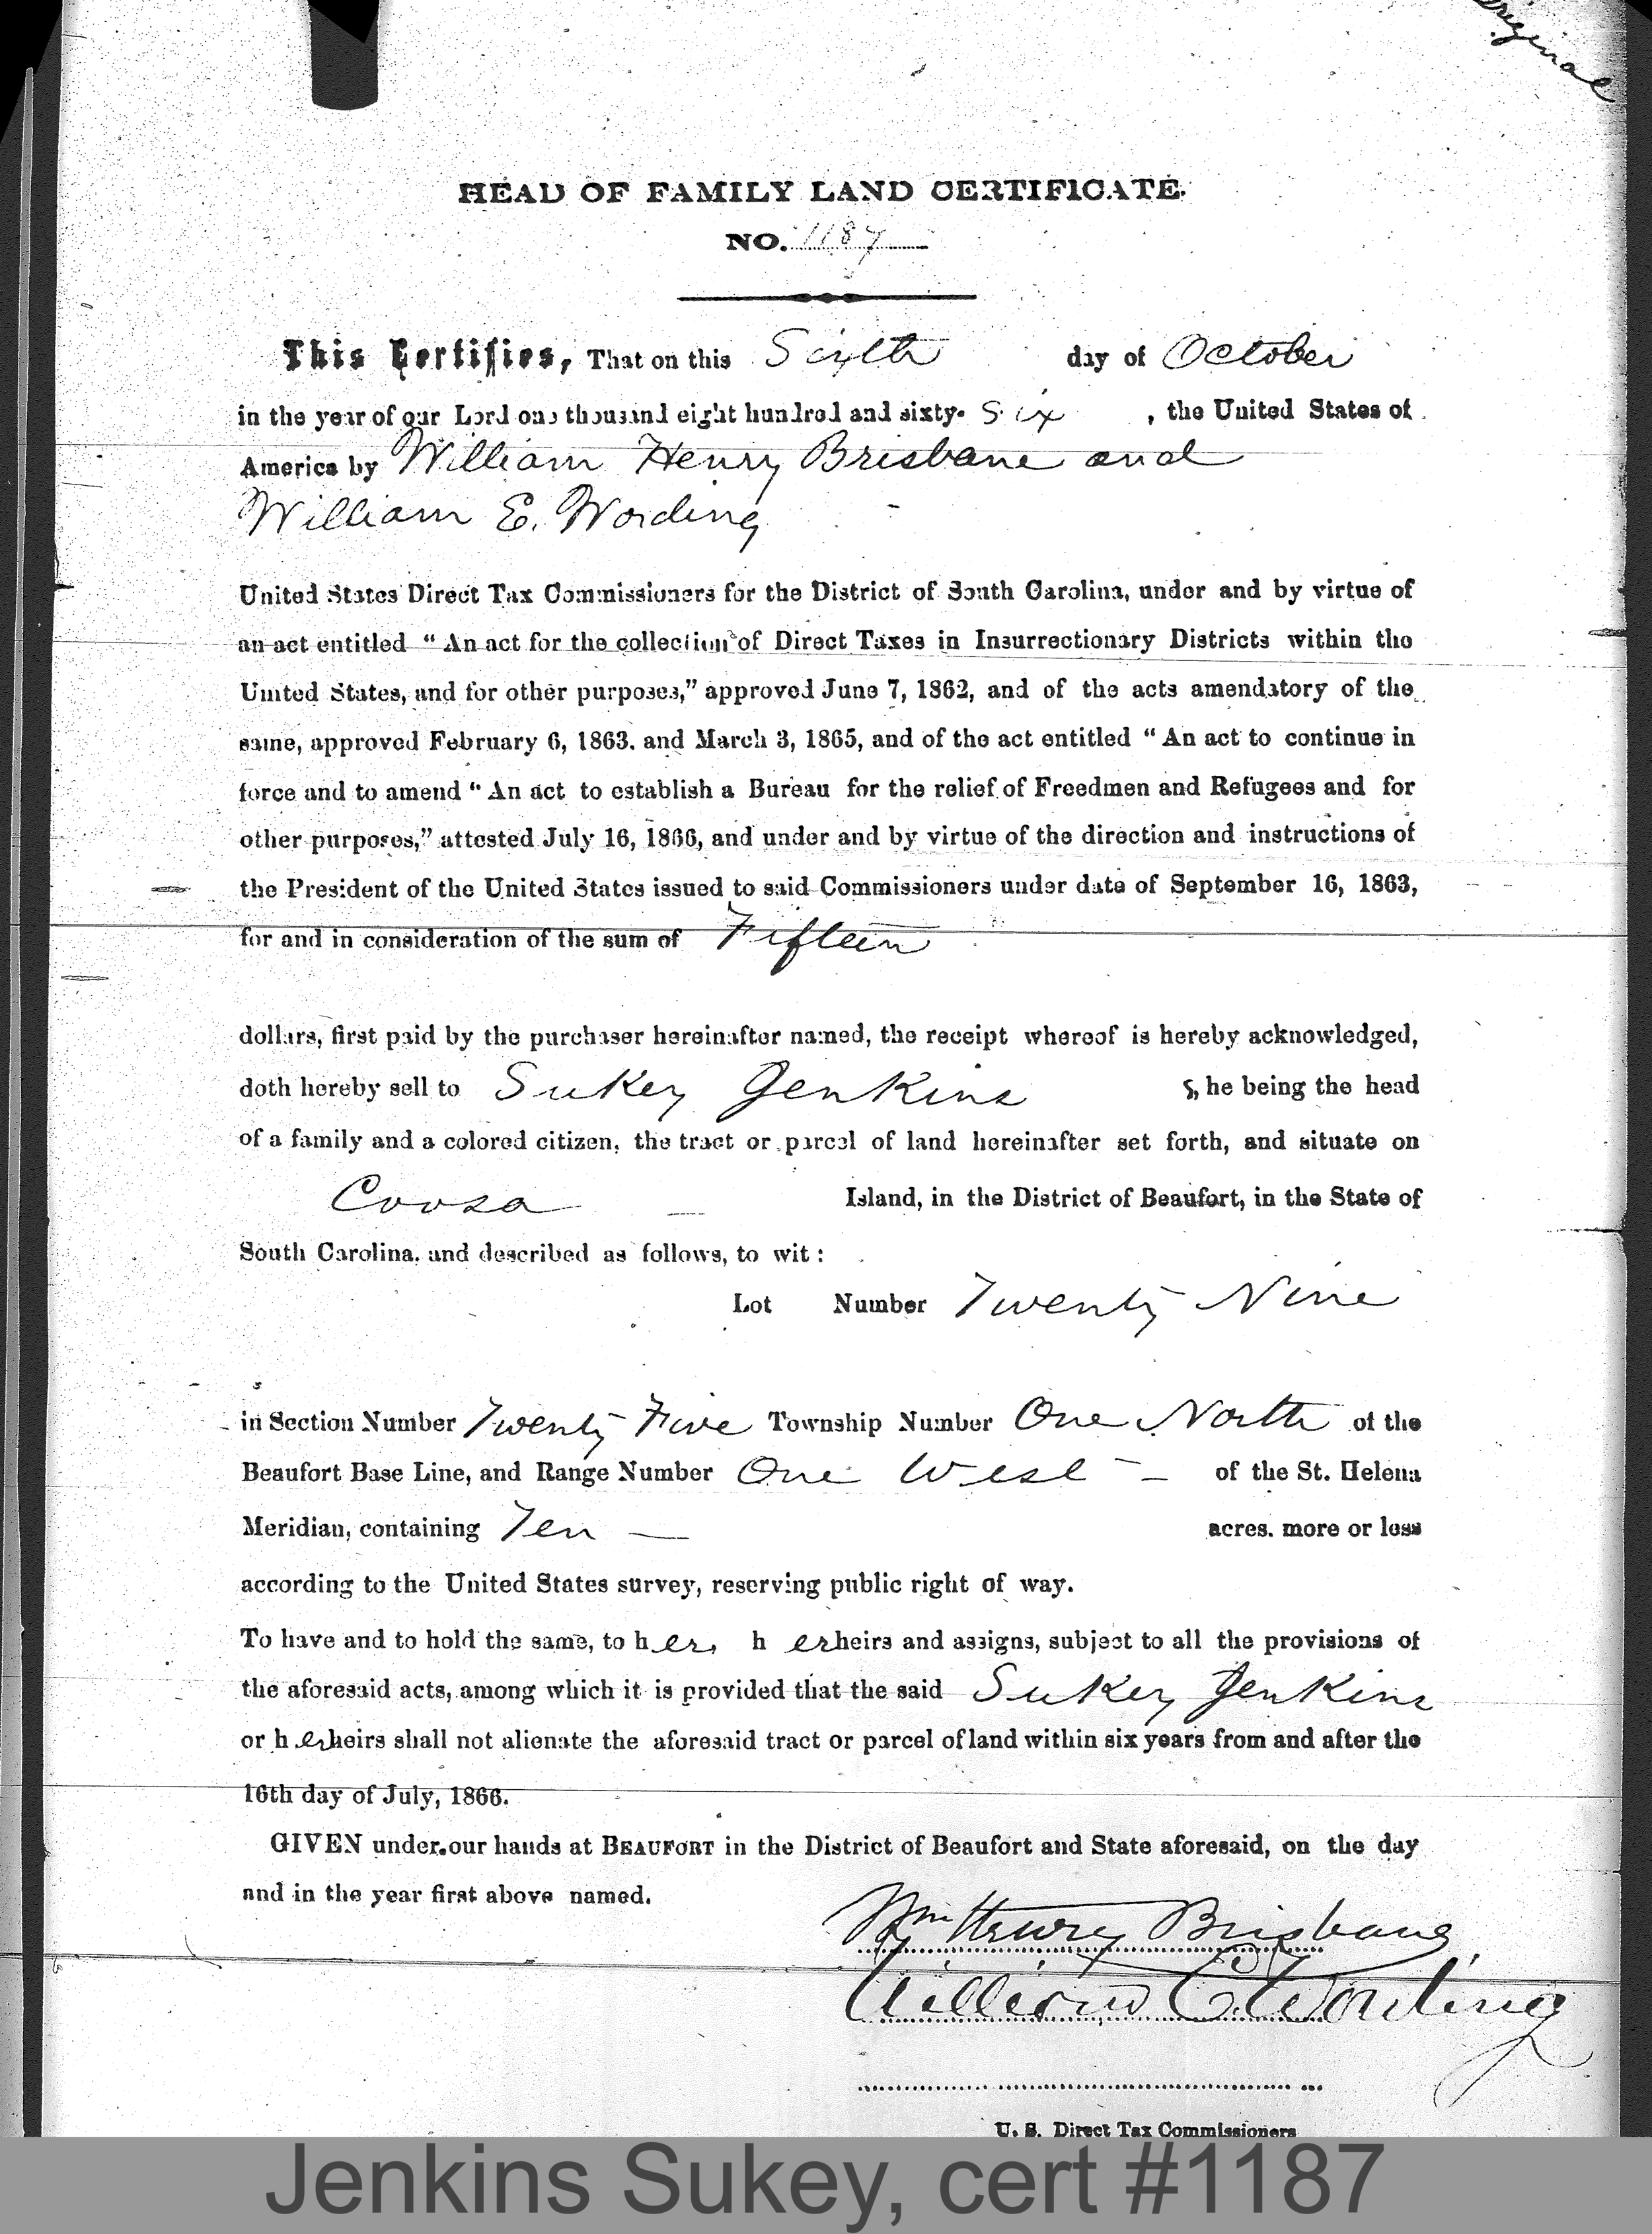 original
HEAD OF FAMILY LAND CERTIFICATE.
NO. 1187
This Certifies, That on this Sixth day of October
in the year of our Lord one thousand eight hundred and sixty- Six , the United States of
America by William Henry Brisbane and
William E. Wording
United States Direct Tax Commissioners for the District of South Carolina, under and by virtue of
an act entitled “ An act for the collection of Direct Taxes in Insurrectionary Districts within the
United States, and for other purposes,” approved June 7, 1862, and of the acts amendatory of the
same, approved February 6, 1863. and March 3, 1865, and of the act entitled “ An act to continue in
force and to amend “ An act to establish a Bureau for the relief of Freedmen and Refugees and for
other purposes,” attested July 16, 1866, and under and by virtue of the direction and instructions of
the President of the United States issued to said Commissioners under date of September 16, 1863,
for and in consideration of the sum of Fifteen
dollars, first paid by the purchaser hereinafter named, the receipt whereof is hereby acknowledged,
doth hereby sell to Sukey Jenkins S, he being the head
of a family and a colored citizen, the tract or parcel of land hereinafter set forth, and situate on
Coosa Island, in the District of Beaufort, in the State of
South Carolina, and described as follows, to wit :
Lot Number Twenty Nine
in Section Number Twenty Five Township Number One North of the
Beaufort Base Line, and Range Number One West of the St. Helena
Meridian, containing Ten acres. more or less
according to the United States survey, reserving public right of way.
To have and to hold the same, to her, h er heirs and assigns, subject to all the provisions of
the aforesaid acts, among which it is provided that the said Sukey Jenkins
or h er heirs shall not alienate the aforesaid tract or parcel of land within six years from and after the
16th day of July, 1866.
GIVEN under our hands at BEAUFORT in the District of Beaufort and State aforesaid, on the day
and in the year first above named.
Wm Henry Brisbane
William E. Wording
U. S. Direct Tax Commissioners
Jenkins Sukey, cert #1187